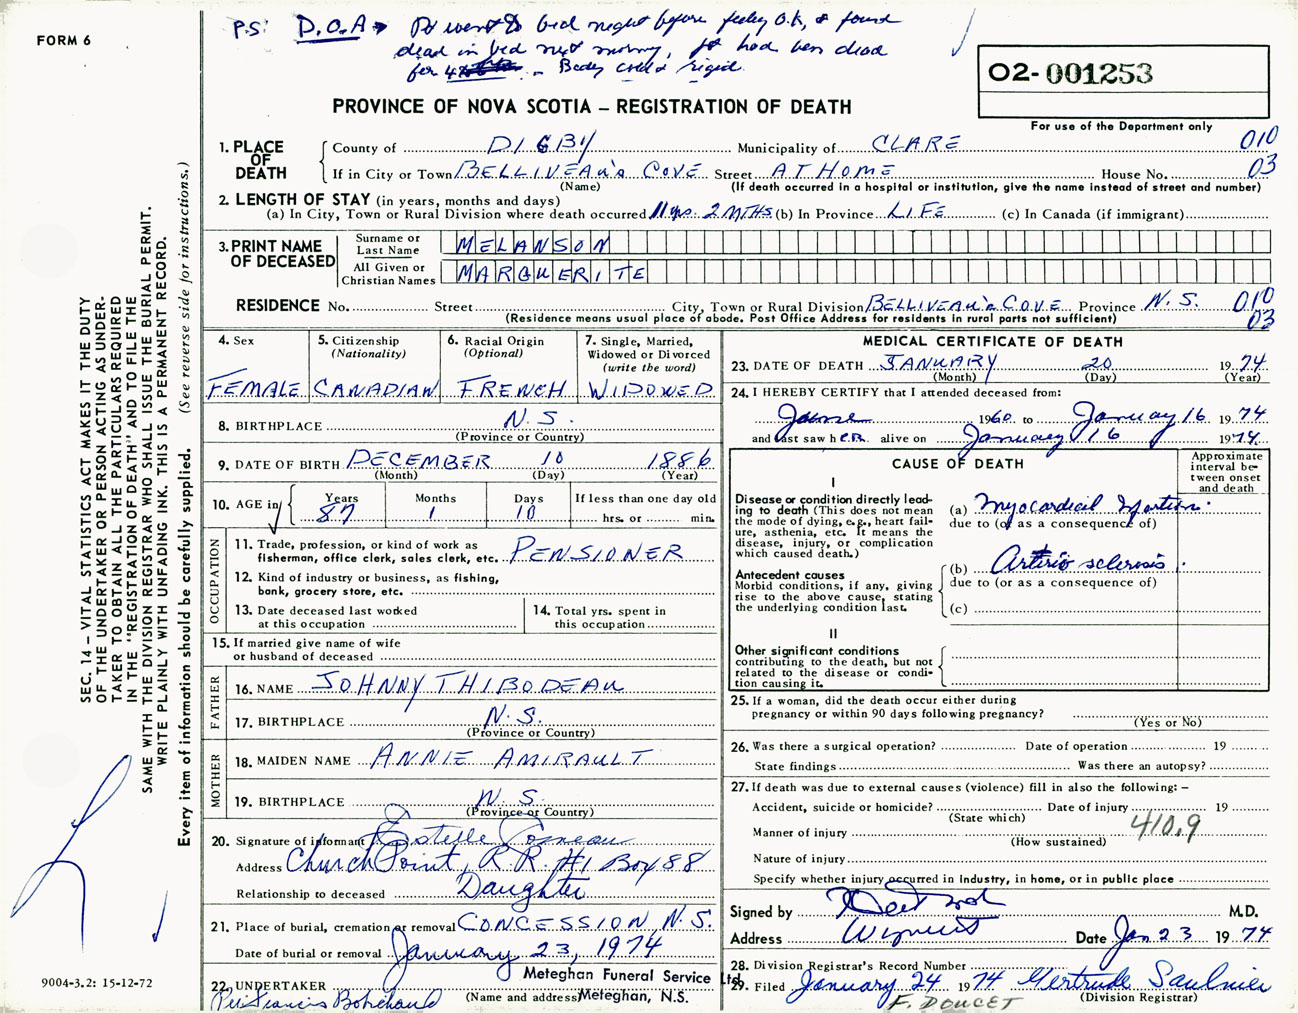 FORM 6
P.S: D.O.A → Pt went to bed night before feeling O.K, & found
dead in bed next morning, Pt had been dead
for 4 - Body cold & rigid.
O2-001253
PROVINCE OF NOVA SCOTIA – REGISTRATION OF DEATH
For use of the Department only
1. PLACE OF DEATH
County of DIGBY Municipality of CLARE 010
If in City or Town BELLIVEAU'S COVE Street AT HOME House No. 03
(Name) (If death occurred in a hospital or institution, give the name instead of street and number)
2. LENGTH OF STAY (in years, months and days)
(a) In City, Town or Rural Division where death occurred 11 yrs. 2 MTHS (b) In Province LIFE (c) In Canada (if immigrant)
3. PRINT NAME OF DECEASED
Surname or Last Name MELANSON
All Given or Christian Names MARGUERITE
RESIDENCE No. Street City, Town or Rural Division BELLIVEAU'S COVE Province N.S. 010
(Residence means usual place of abode. Post Office Address for residents in rural parts not sufficient) 03
4. Sex
FEMALE
5. Citizenship
(Nationality)
CANADIAN
6. Racial Origin
(Optional)
FRENCH
7. Single, Married,
Widowed or Divorced
(write the word)
WIDOWED
8. BIRTHPLACE N.S.
(Province or Country)
9. DATE OF BIRTH DECEMBER 10 1886
(Month) (Day) (Year)
10. AGE in
Years Months Days If less than one day old
87 1 10 hrs. or min.
OCCUPATION
11. Trade, profession, or kind of work as
fisherman, office clerk, sales clerk, etc. PENSIONER
12. Kind of industry or business, as fishing,
bank, grocery store, etc.
13. Date deceased last worked
at this occupation
14. Total yrs. spent in
this occupation
15. If married give name of wife
or husband of deceased
FATHER
16. NAME JOHNNY THIBODEAU
17. BIRTHPLACE N.S.
(Province or Country)
MOTHER
18. MAIDEN NAME ANNIE AMIRAULT
19. BIRTHPLACE N.S.
(Province or Country)
20. Signature of informant Estelle Comeau
Address Church Point, R.R. #1 Box 88
Relationship to deceased Daughter
21. Place of burial, cremation or removal CONCESSION N.S.
Date of burial or removal January 23, 1974
22. UNDERTAKER Meteghan Funeral Service Ltd.
(Name and address) Meteghan, N.S.
MEDICAL CERTIFICATE OF DEATH
23. DATE OF DEATH JANUARY 20 1974
(Month) (Day) (Year)
24. I HEREBY CERTIFY that I attended deceased from:
June 1960 to January 16 1974
and last saw her alive on January 16 1974
CAUSE OF DEATH
Approximate
interval be-
tween onset
and death
I
Disease or condition directly lead-
ing to death (This does not mean
the mode of dying, e.g., heart fail-
ure, asthenia, etc. It means the
disease, injury, or complication
which caused death.)
(a) Myocardial Infarction
due to (or as a consequence of)
Antecedent causes
Morbid conditions, if any, giving
rise to the above cause, stating
the underlying condition last.
(b) Arterio sclerosis
due to (or as a consequence of)
(c)
II
Other significant conditions
contributing to the death, but not
related to the disease or condi-
tion causing it.
25. If a woman, did the death occur either during
pregnancy or within 90 days following pregnancy?
(Yes or No)
26. Was there a surgical operation? Date of operation 19
State findings Was there an autopsy?
27. If death was due to external causes (violence) fill in also the following: –
Accident, suicide or homicide? Date of injury 19
(State which)
410.9
Manner of injury
(How sustained)
Nature of injury
Specify whether injury occurred in Industry, in home, or in public place
Signed by M.D.
Address Weymouth Date Jan 23 1974
28. Division Registrar's Record Number
29. Filed January 24 1974 Gertrude Saulnier
F. DOUCET (Division Registrar)
SEC. 14 – VITAL STATISTICS ACT MAKES IT THE DUTY
OF THE UNDERTAKER OR PERSON ACTING AS UNDER-
TAKER TO OBTAIN ALL THE PARTICULARS REQUIRED
IN THE "REGISTRATION OF DEATH" AND TO FILE THE
SAME WITH THE DIVISION REGISTRAR WHO SHALL ISSUE THE BURIAL PERMIT.
WRITE PLAINLY WITH UNFADING INK. THIS IS A PERMANENT RECORD.
Every item of information should be carefully supplied. (See reverse side for instructions.)
9004-3.2: 15-12-72